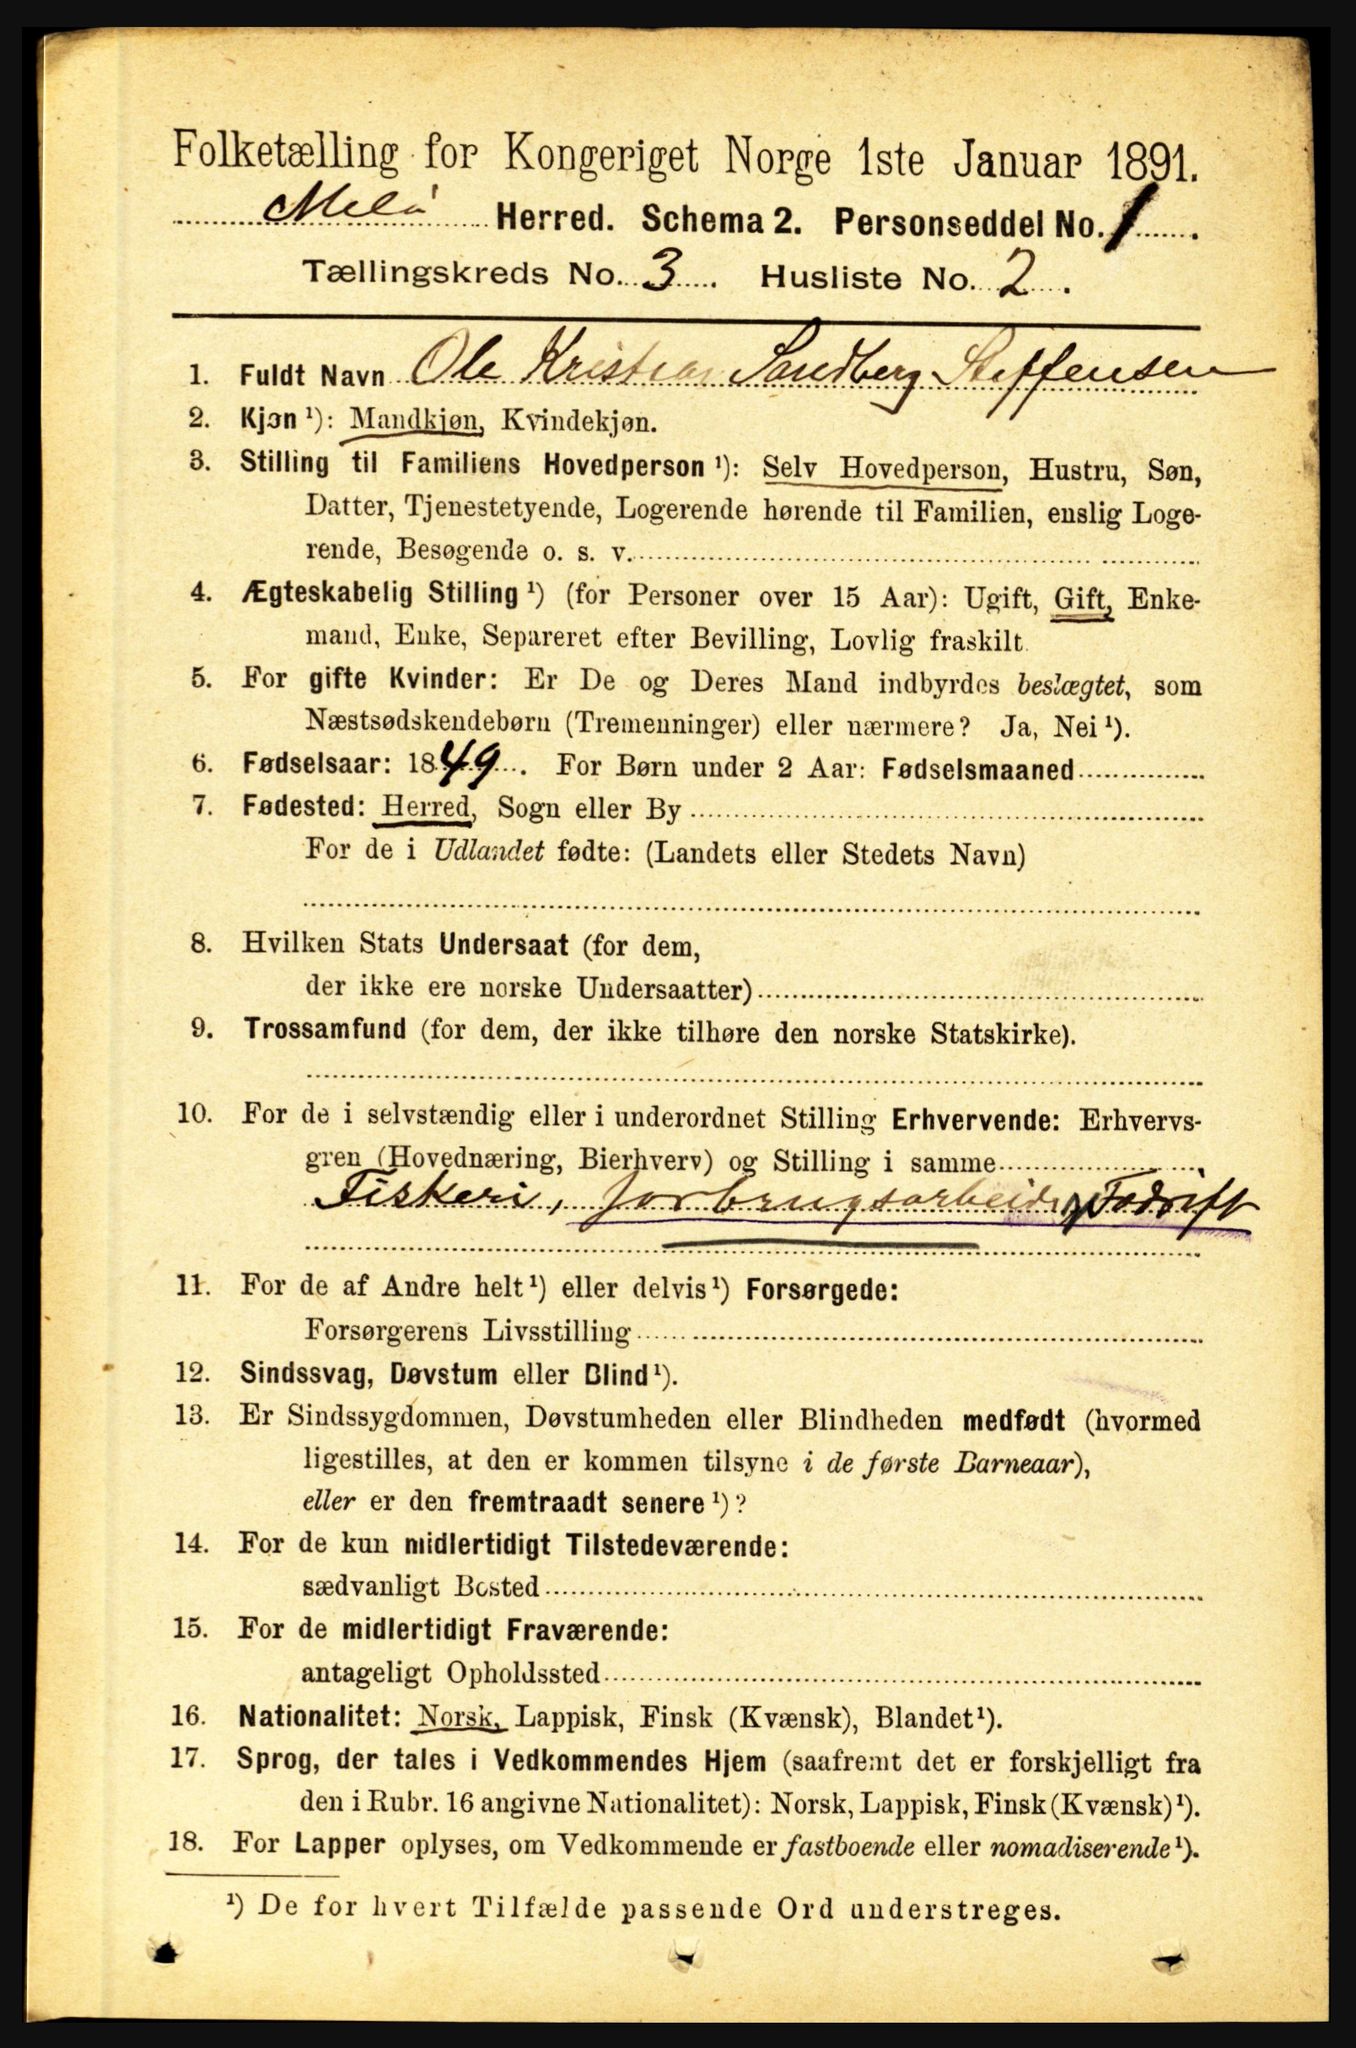 Folketælling for Kongeriget Norge 1ste Januar 1891.
Melø Herred. Schema 2. Personseddel No. 1.
Tællingskreds No. 3. Husliste No. 2.
1. Fuldt Navn Ole Kristian Sandberg Steffensen
2. Kjøn ¹): Mandkjøn, Kvindekjøn.
3. Stilling til Familiens Hovedperson ¹): Selv Hovedperson, Hustru, Søn,
Datter, Tjenestetyende, Logerende hørende til Familien, enslig Loge-
rende, Besøgende o. s. v.
4. Ægteskabelig Stilling ¹) (for Personer over 15 Aar): Ugift, Gift, Enke-
mand, Enke, Separeret efter Bevilling, Lovlig fraskilt.
5. For gifte Kvinder: Er De og Deres Mand indbyrdes beslægtet, som
Næstsødskendebørn (Tremenninger) eller nærmere? Ja, Nei ¹).
6. Fødselsaar: 1849. For Børn under 2 Aar: Fødselsmaaned
7. Fødested: Herred, Sogn eller By
For de i Udlandet fødte: (Landets eller Stedets Navn)
8. Hvilken Stats Undersaat (for dem,
der ikke ere norske Undersaatter)
9. Trossamfund (for dem, der ikke tilhøre den norske Statskirke).
10. For de i selvstændig eller i underordnet Stilling Erhvervende: Erhvervs-
gren (Hovednæring, Bierhverv) og Stilling i samme
Fiskeri, jorbrugsarbeid
11. For de af Andre helt ¹) eller delvis ¹) Forsørgede:
Forsørgerens Livsstilling
12. Sindssvag, Døvstum eller Blind ¹).
13. Er Sindssygdommen, Døvstumheden eller Blindheden medfødt (hvormed
ligestilles, at den er kommen tilsyne i de første Barneaar),
eller er den fremtraadt senere ¹)?
14. For de kun midlertidigt Tilstedeværende:
sædvanligt Bosted
15. For de midlertidigt Fraværende:
antageligt Opholdssted
16. Nationalitet: Norsk, Lappisk, Finsk (Kvænsk), Blandet ¹).
17. Sprog, der tales i Vedkommendes Hjem (saafremt det er forskjelligt fra
den i Rubr. 16 angivne Nationalitet): Norsk, Lappisk, Finsk (Kvænsk) ¹).
18. For Lapper oplyses, om Vedkommende er fastboende eller nomadiserende ¹).
¹) De for hvert Tilfælde passende Ord understreges.